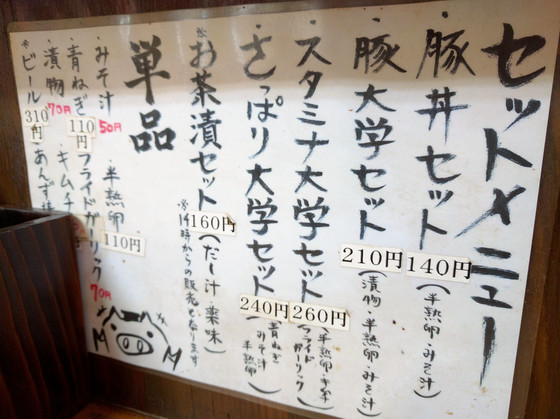 セットメニュー
・豚丼セット 140円 (半熟卵・みそ汁)
・豚大学セット 210円 (漬物・半熟卵・みそ汁)
・スタミナ大学セット 260円 (半熟卵・キムチ フライドガーリック)
・さっぱり大学セット 240円 (青ねぎ みそ汁 半熟卵)
※お茶漬セット 160円 (だし汁・薬味)
※14時からの販売になります
単品
・みそ汁 50円 ・半熟卵 110円
・青ねぎ 110円 フライドガーリック 70円
・漬物 70円 ・キムチ
※ビール 310円 あんず